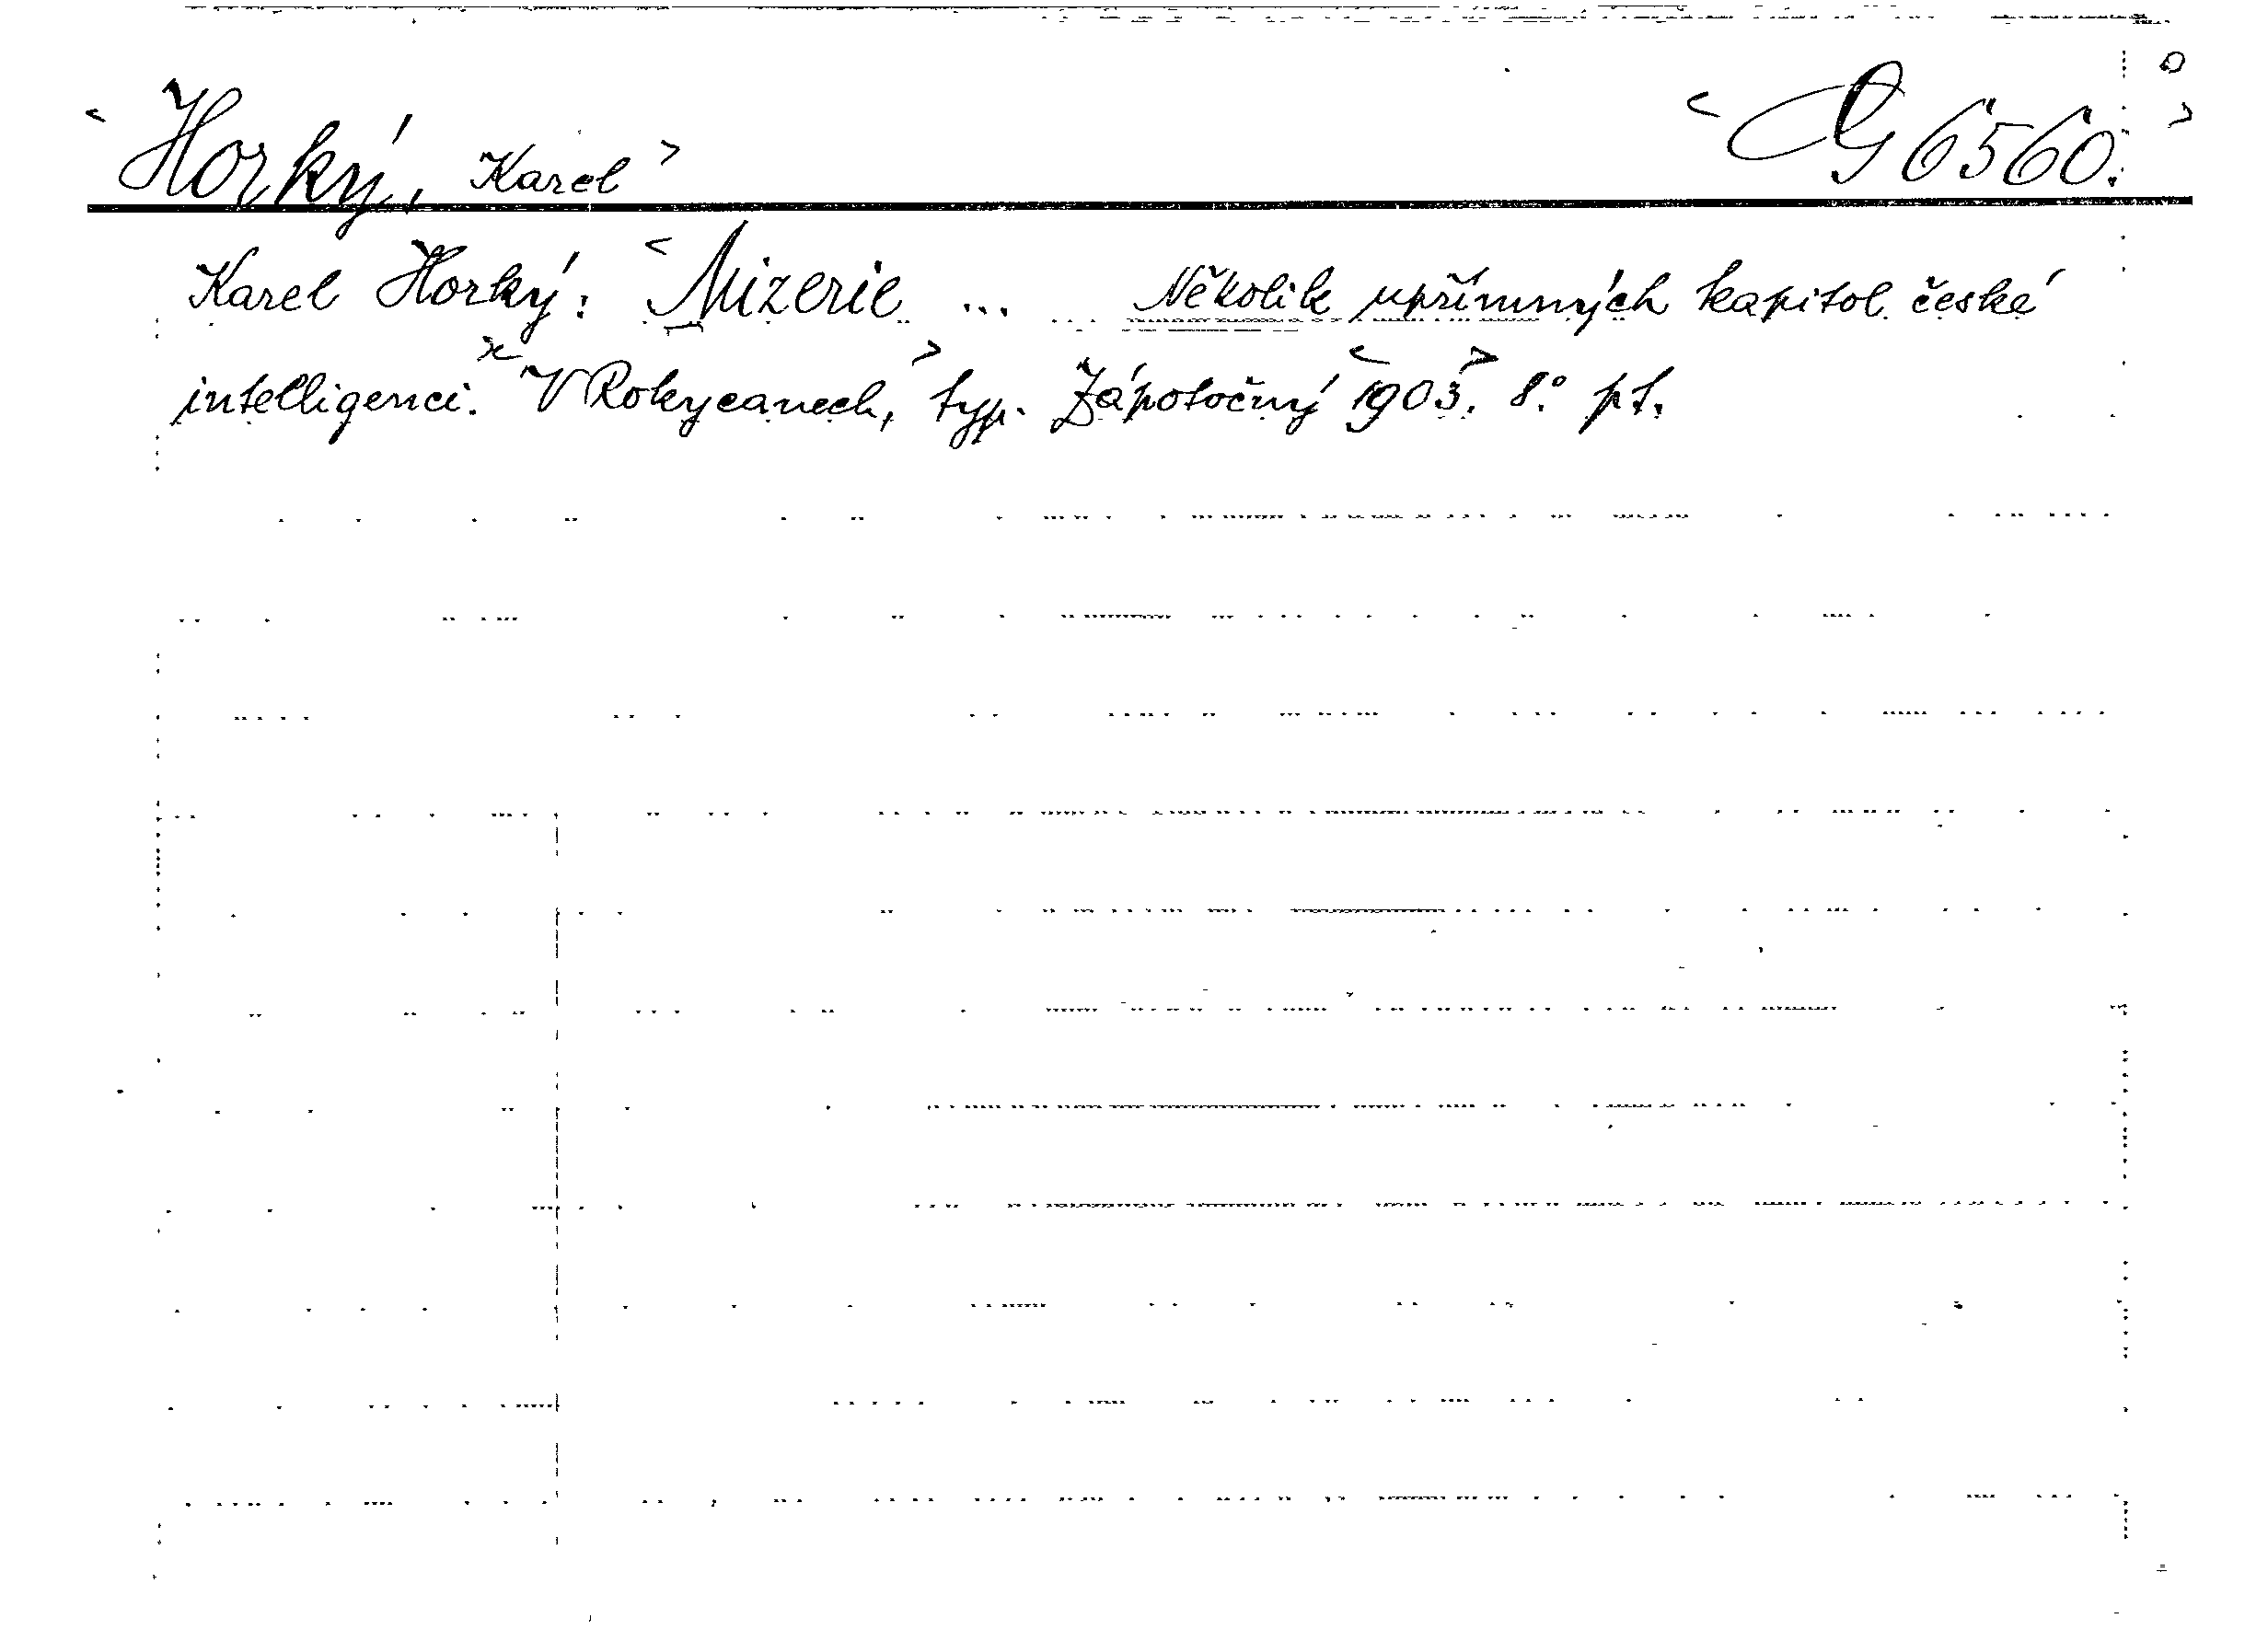 Horký, Karel G 6560.
Karel Horký: Mizerie ... Několik upřímných kapitol české
intelligenci. V Rokycanech, typ. Zápotočný 1903. 8° pt.